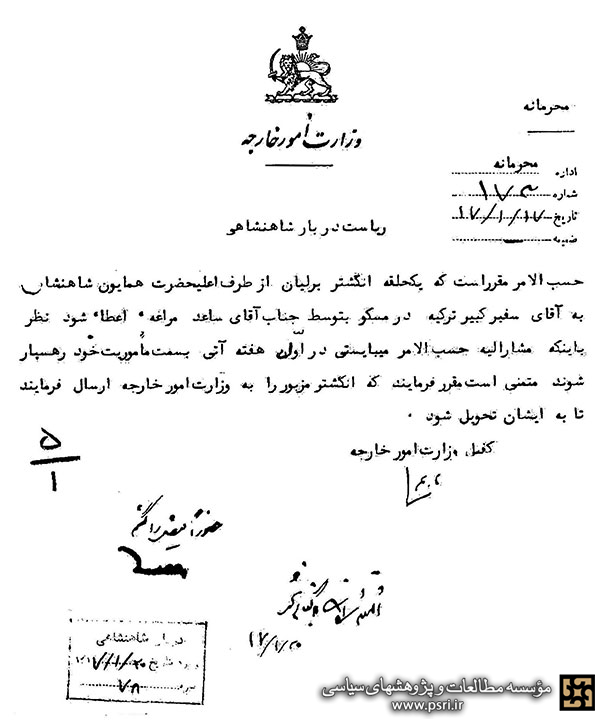 محرمانه
وزارت امور خارجه
اداره محرمانه
شماره ۱۷۳
تاریخ ۱۷/۱/۱۷
ضمیمه
ریاست دربار شاهنشاهی
حسب الامر مقرراست که یکحلقه انگشتر برلیان از طرف اعلیحضرت همایون شاهنشاهی
به آقای سفیر کبیر ترکیه در مسکو بتوسط جناب آقای ساعد مراغه اعطاء شود نظر
باینکه مشارالیه حسب الامر میبایستی در اوّل هفته آتی بسمت مأموریت خود رهسپار
شوند متمنی است مقرر فرمایند که انگشتر مزبور را به وزارت امور خارجه ارسال فرمایند
تا به ایشان تحویل شود .
کفیل وزارت امور خارجه
۵
۱
۱۷/۱/۲۰
دربار شاهنشاهی
بتاریخ ۱۷/۱/۲۰
نمره ۷۸
مؤسسه مطالعات و پژوهشهای سیاسی
www.psri.ir